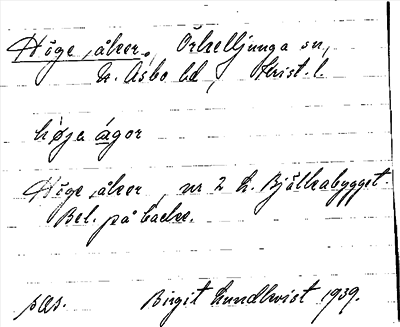 Höge åker, Örkelljunga sn,
N. Åsbo hd, Krist. l.
hø̀ja ágor
Höge åker, nr 2 L. Bjälkabygget.
Bel. på backe.
pæs.
Birgit Lundkvist 1939.